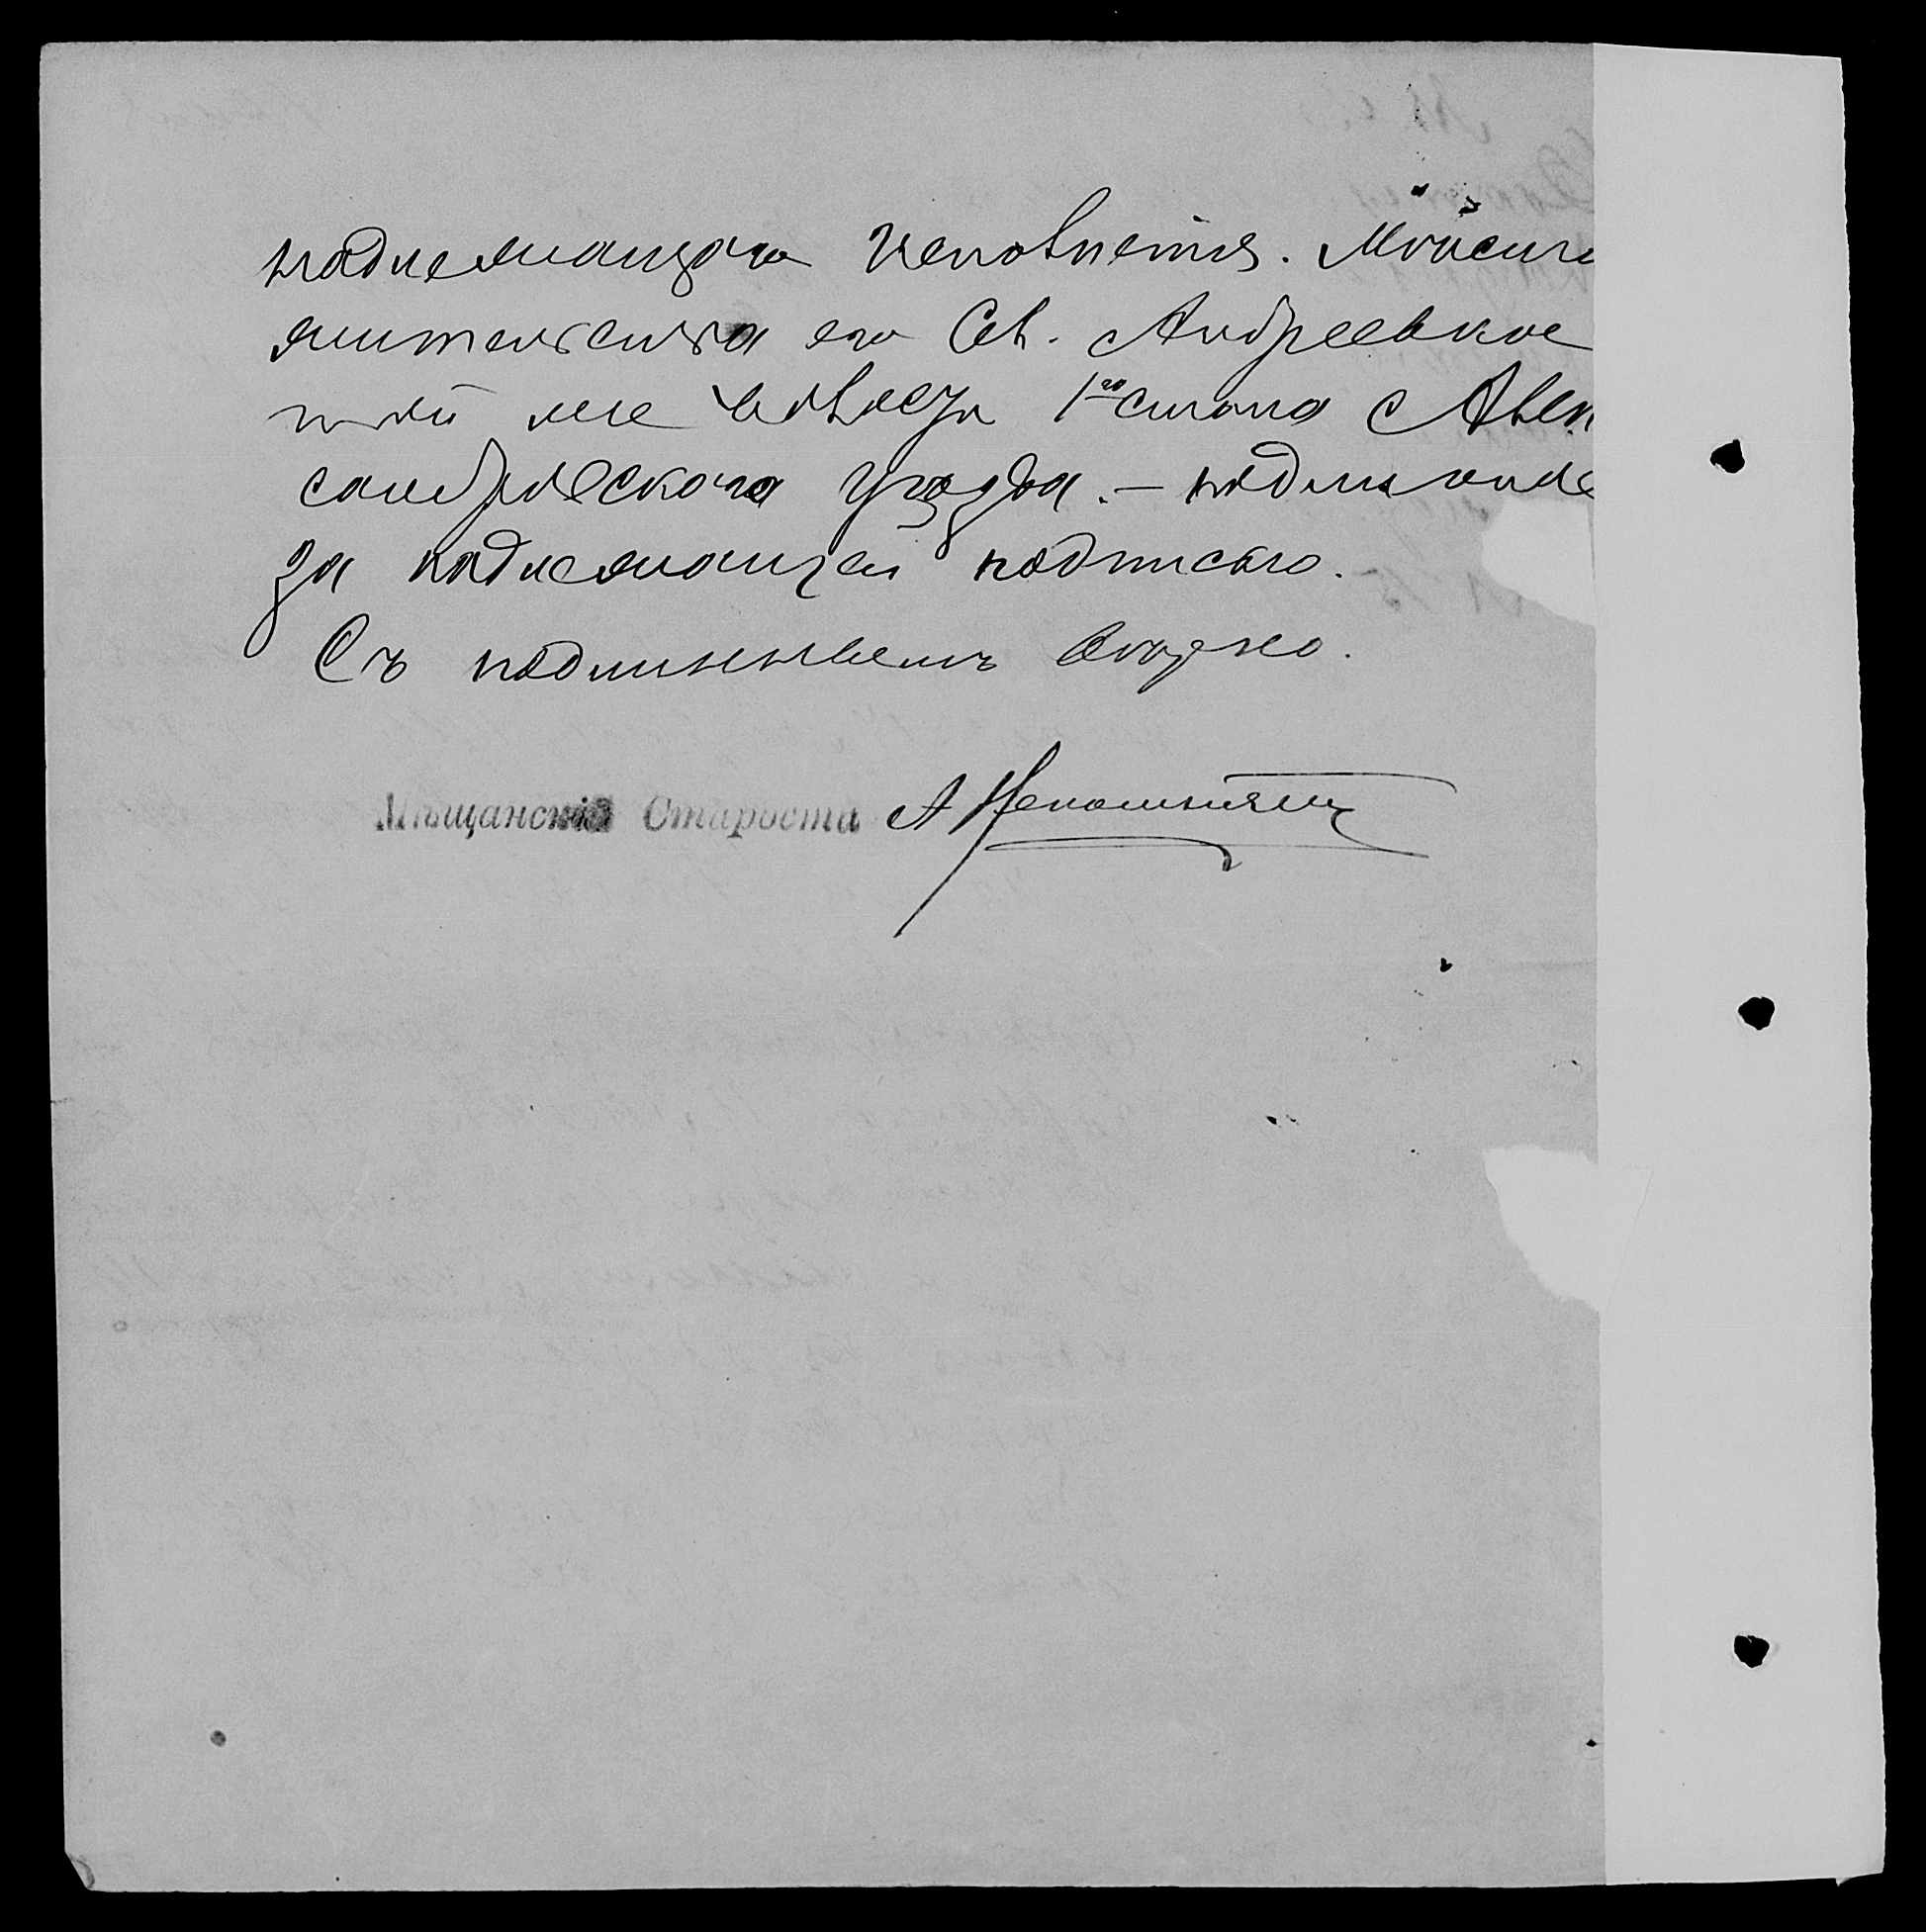 надлежащаго исполненія. Мѣсто
жительства его Сев. Андреевкое
той же волости 1го стана Алек
сандровскаго уѣзда. — подлинное
за надлежащей подписью.
Съ подлиннымъ вѣрно.
Мѣщанскій Староста А